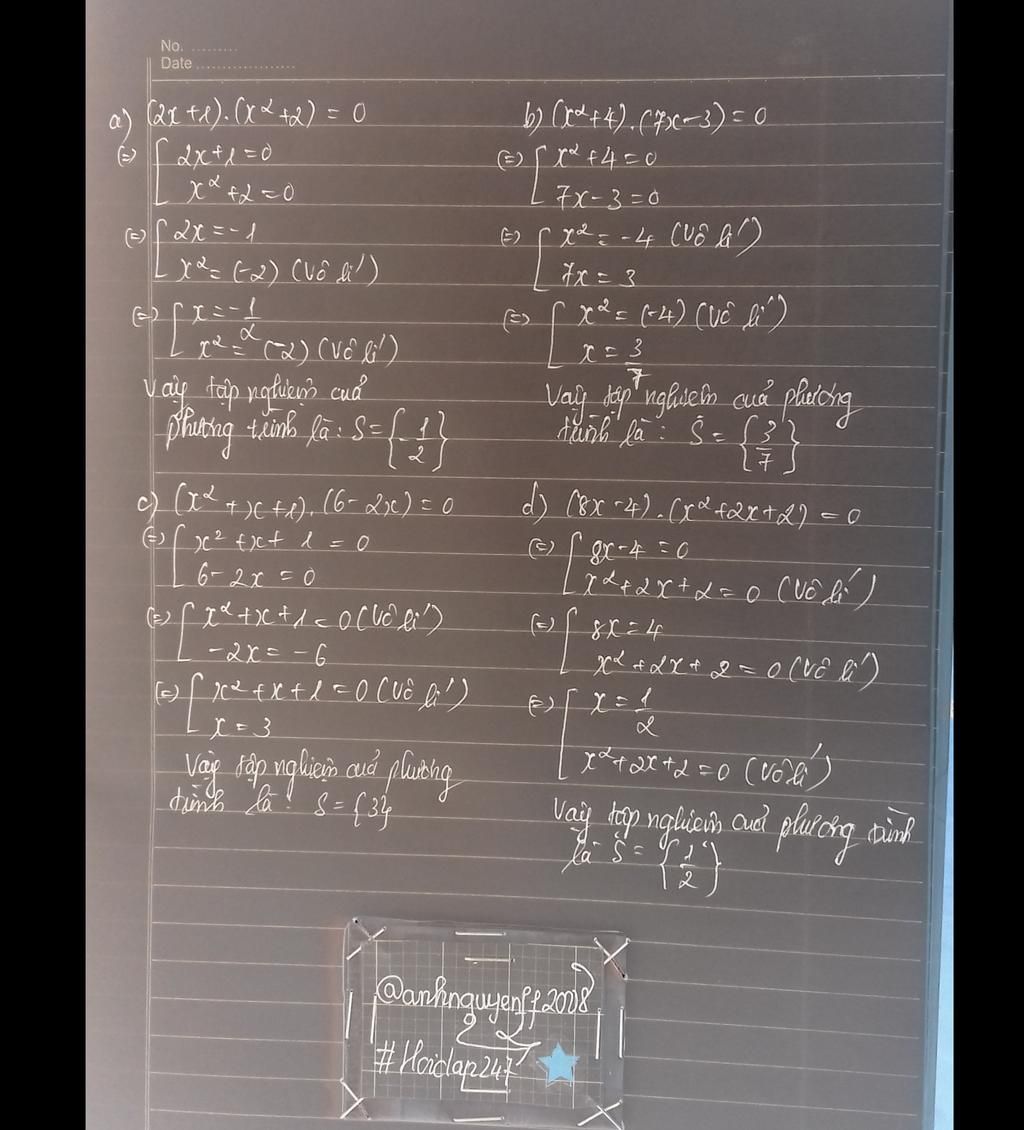 No. .........
Date ..................
a) (2x+1).(x²+2) = 0
(=) [ 2x+1=0
x²+2=0
(=) [ 2x=-1
x²=(-2) (Vô lí)
(=) [ x=-1/2
x²=(-2) (Vô lí)
Vậy tập nghiệm của
phương trình là: S={-1/2}
b) (x²+4).(7x-3)=0
(=) [ x²+4=0
7x-3=0
(=) [ x²=-4 (Vô lí)
7x=3
(=) [ x²=(-4) (Vô lí)
x=3/7
Vậy tập nghiệm của phương
trình là: S={3/7}
c) (x²+x+1).(6-2x)=0
(=) [ x²+x+1=0
6-2x=0
(=) [ x²+x+1=0 (Vô lí)
-2x=-6
(=) [ x²+x+1=0 (Vô lí)
x=3
Vậy tập nghiệm của phương
trình là: S={3}
d) (8x-4).(x²+2x+2)=0
(=) [ 8x-4=0
x²+2x+2=0 (Vô lí)
(=) [ 8x=4
x²+2x+2=0 (Vô lí)
(=) [ x=1/2
x²+2x+2=0 (Vô lí)
Vậy tập nghiệm của phương trình
là S={1/2}
@anhnguyenff2008
#Hoidap247